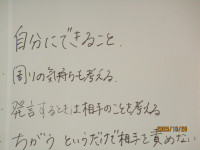 自分にできること、
周りの気持ちも考える、
発言するときは相手のことを考える
ちがう というだけで相手を責めない